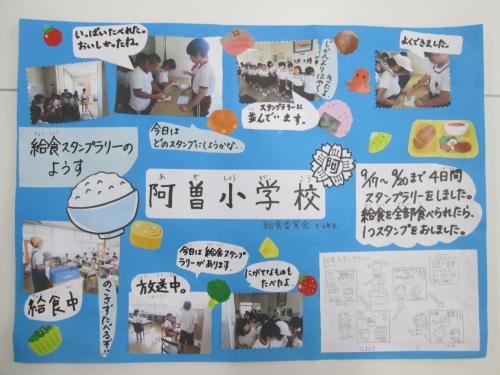 いっぱいたべれた。
おいしかったね。
給食スタンプラリーの
ようす
今日は
どのスタンプにしようかな…
スタンプラリーに
並んでいます。
よくできました。
阿
阿曽小学校
あ そ しょう がっ こう
給食委員会
9/17〜9/20まで4日間
スタンプラリーをしました。
給食を全部食べられたら、
1つスタンプをおしました。
給食中
のこさずたべるぞ!!
放送中。
今日は給食スタンプ
ラリーがあります。
にがてなものも
たべたよ。
給食スタンプラリー